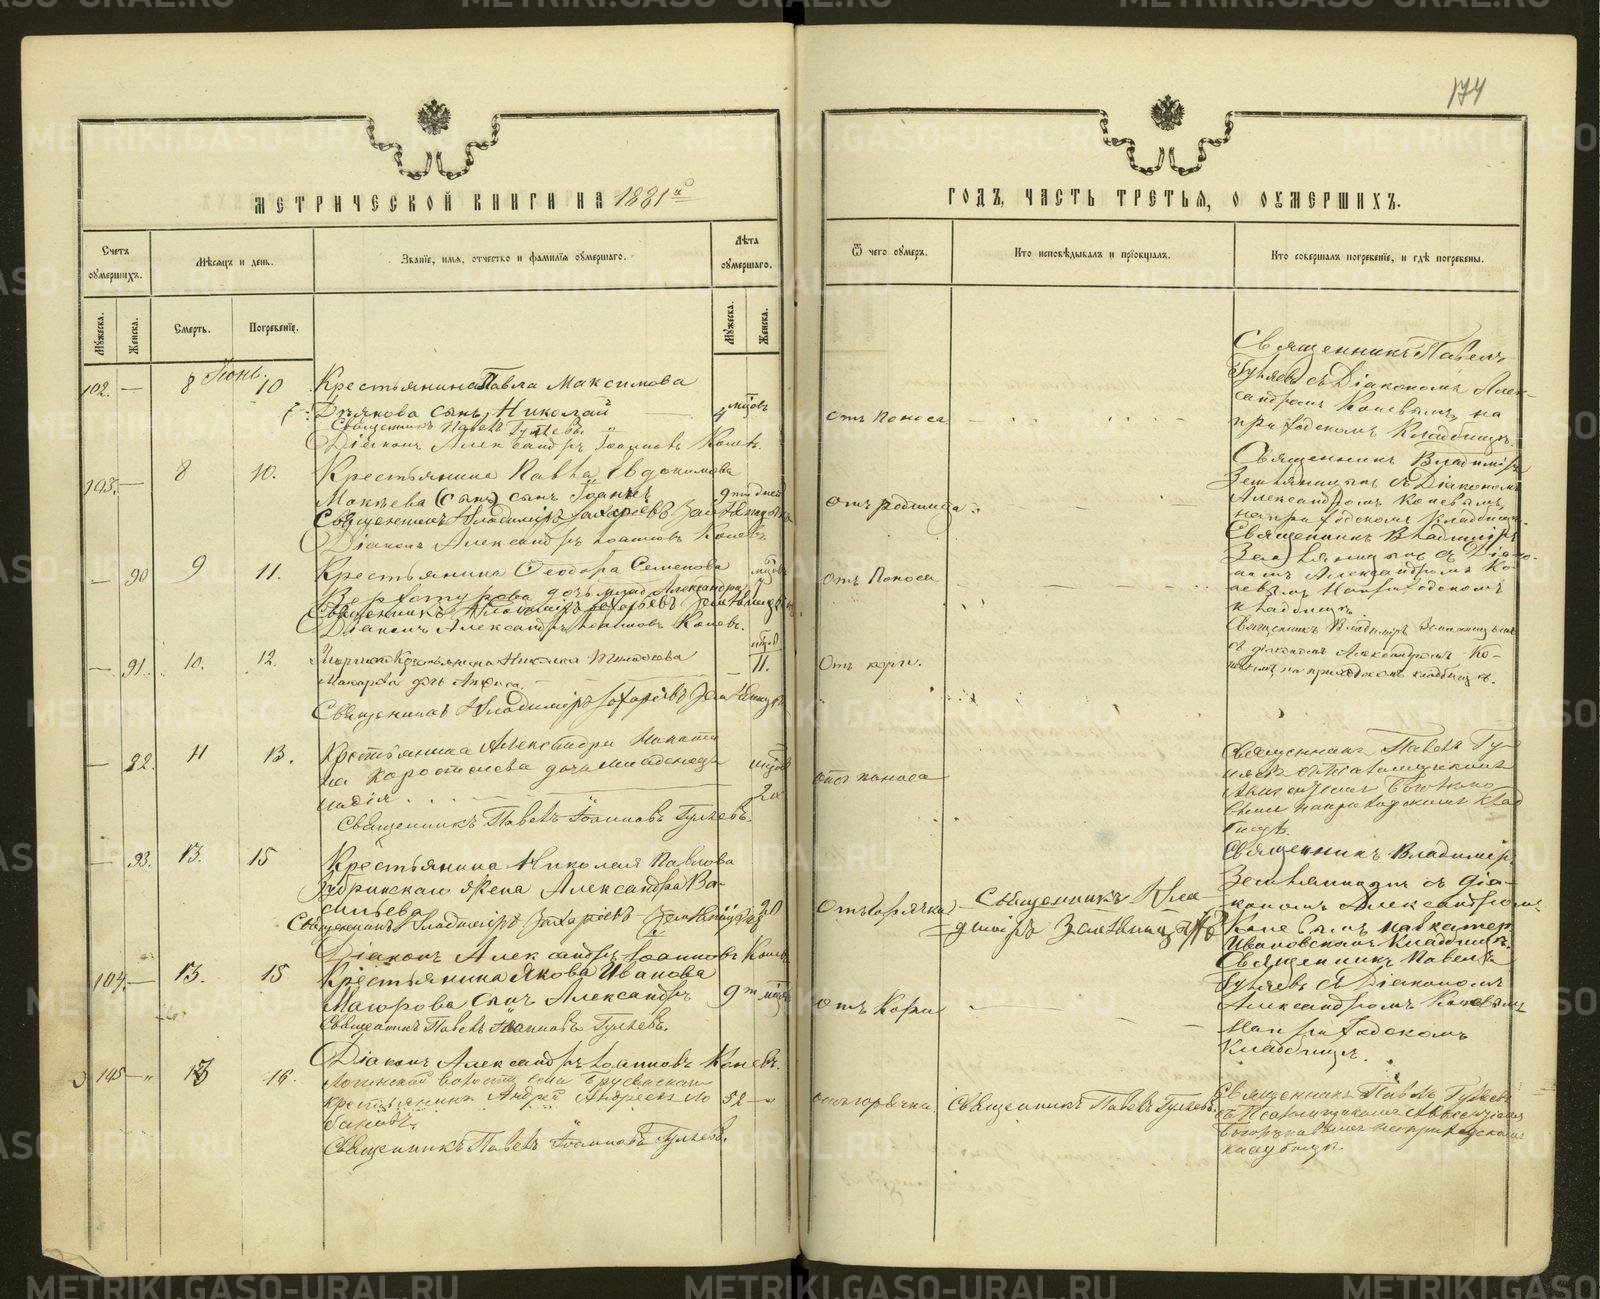 174
МЕТРИЧЕСКОЙ КНИГИ НА 1881й
ГОДЪ, ЧАСТЬ ТРЕТЬЯ, О ОУМЕРШИХЪ.
Счетъ оумершихъ.
Мѣсяцъ и день.
Званіе, имя, отчество и фамилія оумершаго.
Лѣта оумершаго.
Мужеска.
Женска.
Смерть.
Погребеніе.
Мужеска.
Женска.
Ѿ чего оумеръ.
Кто исповѣдывалъ и пріобщалъ.
Кто совершалъ погребеніе, и гдѣ погребены.
Іюнь.
102. — 8 10
Крестьянина Павла Максимова
Дьякова сынъ Николай
4 мѣсяц
Священникъ Павелъ Гуляевъ
Діаконъ Александръ Іоанновъ Коневъ.
отъ поноса
Священникъ Павелъ
Гуляевъ съ Діакономъ Алек-
сандромъ Коневымъ, на
приходскомъ Кладбищѣ.
103. — 8 10.
Крестьянина Павла Евдокимова
Макѣева (сынъ) сынъ Іоаннъ
9ти дней
Священникъ Владиміръ Захаріевъ Земляницынъ
Діаконъ Александръ Іоанновъ Коневъ
отъ родимца.
Священникъ Владиміръ
Земляницынъ съ Діакономъ
Александромъ Коневымъ,
на приходскомъ Кладбищѣ.
— 90 9 11.
Крестьянина Ѳеодора Семенова
Верхотурова дочь млад. Александра
Священникъ Владиміръ Захаріевъ Земляницынъ
Діаконъ Александръ Іоанновъ Коневъ.
отъ поноса
Священникъ Владиміръ
Земляницынъ съ Діако-
номъ Александромъ Ко-
невымъ На приходскомъ
кладбищѣ.
— 91. 10. 12.
Крестьянина Николая
Макарова дочь Анфиса.
11.
Священникъ Владиміръ Захаріевъ Земляницынъ
отъ кори.
Священникъ Владиміръ Земляницынъ
съ діакономъ Александромъ Ко-
невымъ на приходскомъ кладбищѣ.
— 92. 11 13.
Крестьянина Александра Никити
на Коростелева дочь младенецъ
Священникъ Павелъ Іоанновъ Гуляевъ.
отъ поноса
Священникъ Павелъ Гу-
ляевъ съ Псаломщикомъ
на приходскомъ клад
бищѣ.
— 93. 13. 15
Крестьянина Николая Павлова
жена Александра Ва-
сильева
20
Священникъ Владиміръ Захаріевъ Земляницынъ
Діаконъ Александръ Іоанновъ Коневъ
отъ горячки
Священникъ Вла-
диміръ Земляницынъ
Священникъ Владиміръ
Земляницынъ съ Діа-
кономъ Александромъ
Коневымъ на Екатер.
Ивановскомъ Кладбищѣ.
104. — 13. 15
Крестьянина Якова Иванова
Маюрова сынъ Александръ
9ти мѣсяц
Священникъ Павелъ Іоанновъ Гуляевъ.
Діаконъ Александръ Іоанновъ Коневъ.
отъ Кори
Священникъ Павелъ
Гуляевъ съ Діакономъ
Александромъ Коневымъ
На приходскомъ
Кладбищѣ.
105 — „ 13 16.
волости села Брусянскаго
крестьянинъ Андрей Андреевъ Ло
бановъ.
52 — „
Священникъ Павелъ Іоанновъ Гуляевъ.
отъ горячки
Священникъ Павелъ Гуляевъ
Священникъ Павелъ Гуляевъ
съ Псаломщикомъ
на приходскомъ
кладбищѣ.